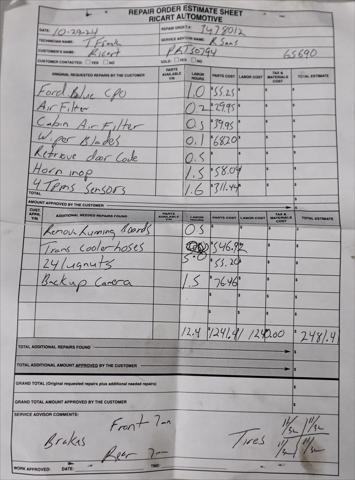 REPAIR ORDER ESTIMATE SHEET
RICART AUTOMOTIVE
DATE: 10-29-24 REPAIR ORDER #: 1478012
TECHNICIAN NAME: T Frank SERVICE ADVISOR NAME: R Sans
CUSTOMER'S NAME: Ricart PRT50794 65690
CUSTOMER CONTACTED: YES NO SOLD: YES NO
ORIGINAL REQUESTED REPAIRS BY THE CUSTOMER PARTS AVAILABLE Y/N LABOR HOURS PARTS COST LABOR COST TAX & MATERIALS COST TOTAL ESTIMATE
Ford Blue CPO 1.0 $55.25 $ $ $
Air Filter 0.2 $29.95 $ $ $
Cabin Air Filter 0.5 $39.95 $ $ $
Wiper Blades 0.1 $68.20 $ $ $
Retrieve door Code 0.5 $ $ $ $
Horn inop 1.5 $58.04 $ $ $
4 Tpms Sensors 1.6 $311.44 $ $ $
TOTAL
AMOUNT APPROVED BY THE CUSTOMER $
CUST. APPR. Y/N ADDITIONAL NEEDED REPAIRS FOUND PARTS AVAILABLE Y/N LABOR HOURS PARTS COST LABOR COST TAX & MATERIALS COST TOTAL ESTIMATE
Remove Running Boards 0.5 $ $ $ $
Trans cooler hoses 5.0 $546.92 $ $ $
24 lugnuts $55.20 $ $ $
Backup Camera 1.5 $7646 $ $ $
12.4 1241.41 1240.00 $ 2481.41
TOTAL ADDITIONAL REPAIRS FOUND $
TOTAL ADDITIONAL AMOUNT APPROVED BY THE CUSTOMER $
GRAND TOTAL (Original requested repairs plus additional needed repairs) $
GRAND TOTAL AMOUNT APPROVED BY THE CUSTOMER $
SERVICE ADVISOR COMMENTS:
Front 7mm 11/32 11/32
Brakes Tires
Rear 7mm 11/32 11/32
WORK APPROVED: DATE: TIME: